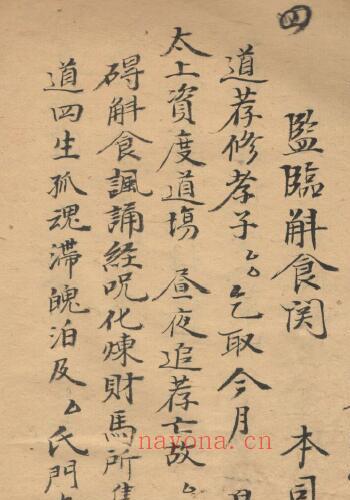 四
監臨斛食関 本司
道荐修孝子厶厶乞取今月
太上資度道場 昼夜追荐亡故
碍斛食諷誦経呪化煉財馬所
道四生孤魂滞魄泊及厶氏門
nayona.cn